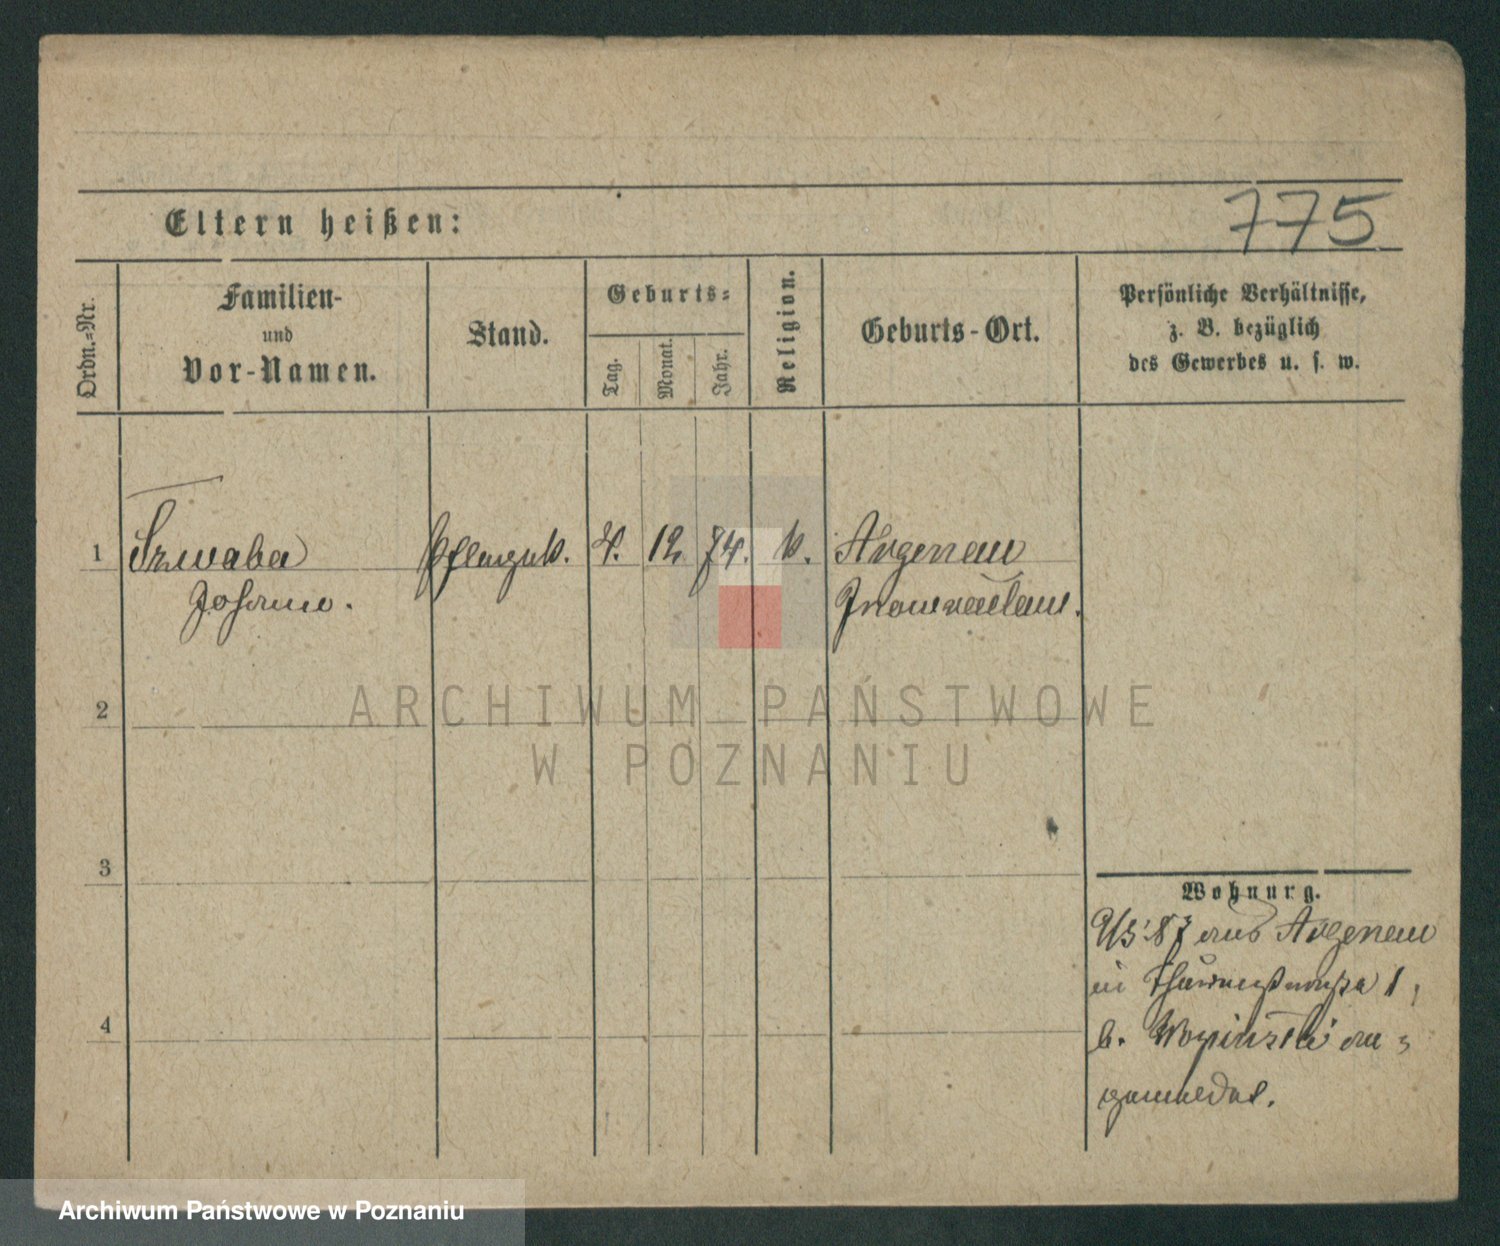 775
Eltern heißen:
Ordn.-Nr.
Familien-
und
Vor-Namen.
Stand.
Geburts-
Tag.
Monat.
Jahr.
Religion.
Geburts-Ort.
Persönliche Verhältnisse,
z. B. bezüglich
des Gewerbes u. s. w.
1 Szwaba 4. 12. 74. k. Argenau
Johann. Inowrazlaw.
2
ARCHIWUM PAŃSTWOWE
W POZNANIU
3
4
Wohnung.
87 aus Argenau
in 1,
b. an-
gemeldet.
Archiwum Państwowe w Poznaniu